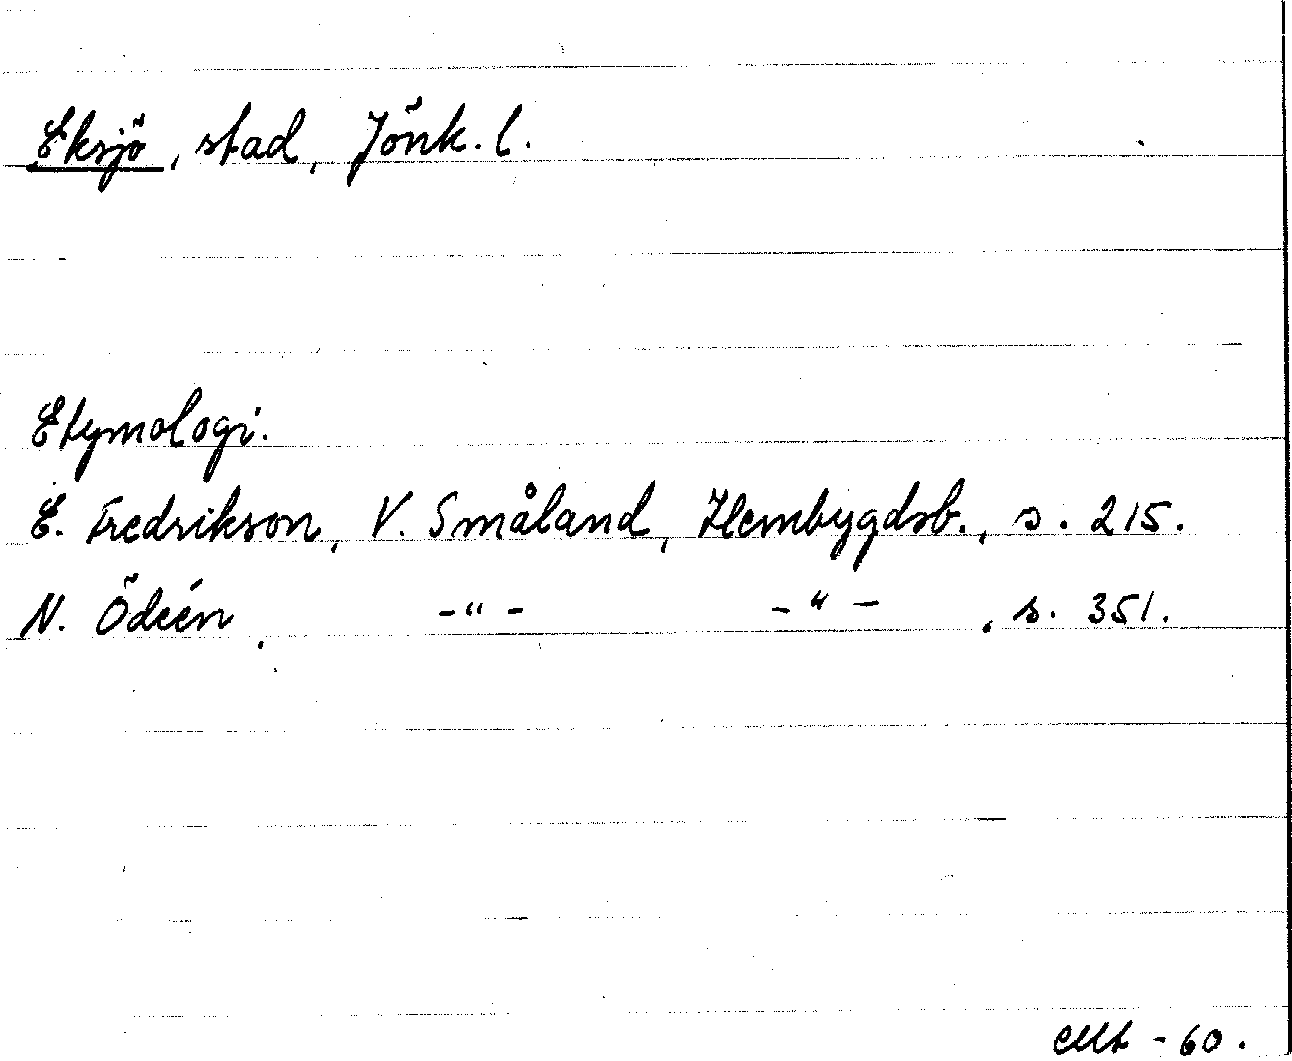 Eksjö, stad, Jönk. l.
Etymologi.
E. Fredrikson, V. Småland, Hembygdsb., s. 215.
N. Ödéen, -"- -"-, s. 351.
-60.